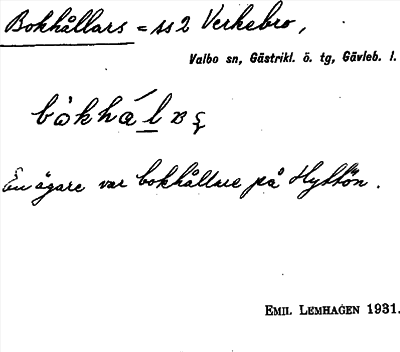 Bokhållars = ss 2 Verkebro,
Valbo sn, Gästrikl. ö. tg, Gävleb. l.
En ägare var bokhållare på Hyttön.
EMIL LEMHAGEN 1931.